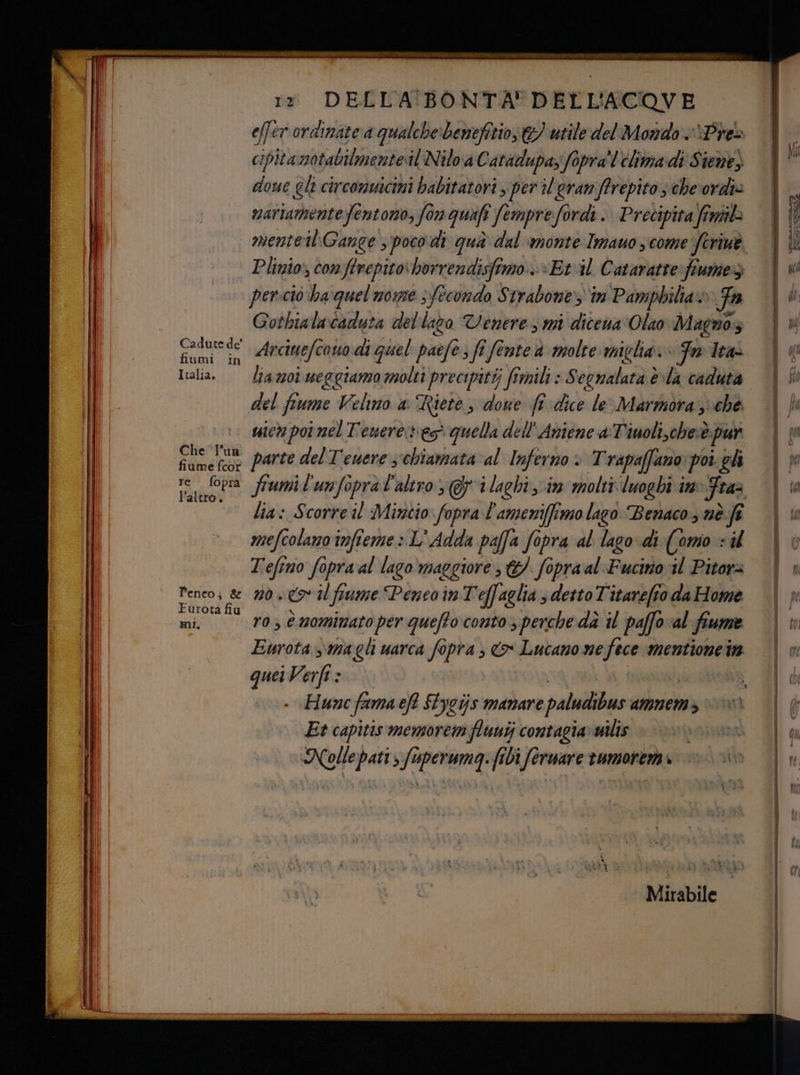 12 DELLA BONTA' DELL'ACQVE
eſſer ordinate a qualche benefitio, & utile del Mondo. Pre-
cipita notabilmente il Nilo a Catadupa, ſopra'l clima di Siene,
doue gli circonuicini habitatori, per il gran ſtrepito, che ordi-
nariamente ſentono, ſon quaſi ſempre ſordi. Precipita ſimil-
mente il Gange, poco di quà dal monte Imauo, come ſcriue
Plinio, con ſtrepito horrendisſimo. Et il Cataratte fiume,
per ciò ha quel nome, ſecondo Strabone, in Pamphilia. In
Gothia la caduta del lago Venere, mi diceua Olao Magno,
Cadute de' fiumi in Italia.
Arciueſcouo di quel paeſe, ſi ſente a molte miglia. In Ita-
lia noi ueggiamo molti precipitij ſimili: Segnalata è la caduta
del fiume Velino a Riete, doue ſi dice le Marmora, che
uien poi nel Teuere: & quella dell'Aniene a Tiuoli, che è pur
Che l'un fiume ſcorre ſopra l'altro.
parte del Teuere, chiamata al Inferno. Trapaſſano poi gli
fiumi l'un ſopra l'altro, & i laghi, in molti luoghi in Ita-
lia: Scorre il Mintio ſopra l'ameniſſimo lago Benaco, nè ſi
meſcolano inſieme: L'Adda paſſa ſopra al lago di Como: il
Teſino ſopra al lago maggiore, & ſopra al Fucino il Pitor-
Peneo, & Eurota fiumi.
no. & il fiume Peneo in Teſſaglia, detto Titareſſo da Home
ro, è nominato per queſto conto, perche dà il paſſo al fiume
Eurota, ma gli uarca ſopra, & Lucano ne fece mentione in
quei Verſi:
Hunc fama eſt Stygijs manare paludibus amnem,
Et capitis memorem fluuij contagia uilis
Nolle pati, ſuperumq. ſibi ſeruare tumorem.
Mirabile